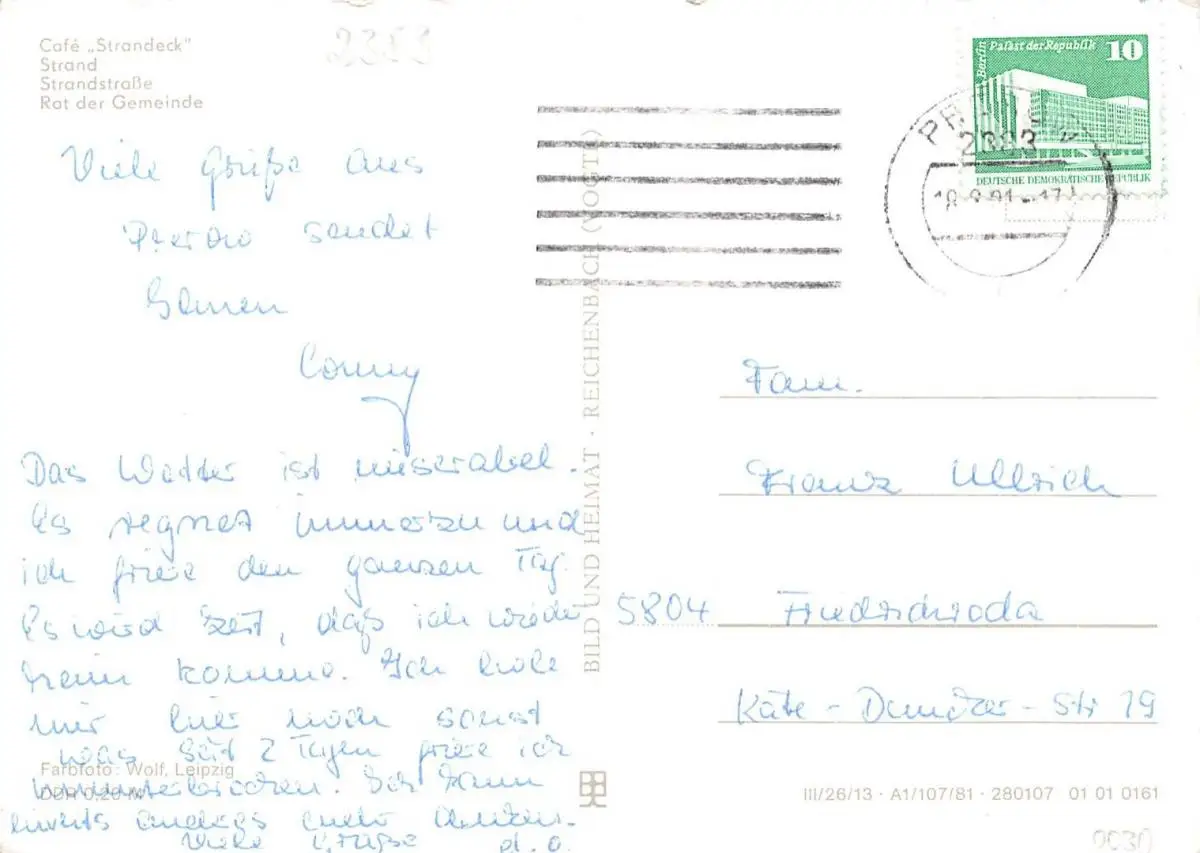 Café „Strandeck"
Strand
Strandstraße
Rat der Gemeinde
2383
Viele Grüße aus
Prerow sendet
Conny
Das Wetter ist miserabel.
Es regnet immerzu und
ich friere den ganzen Tag.
Es wird Zeit, daß ich wieder
heim komme. Ich hole
mir hier noch sonst
was. Seit 2 Tagen friere ich
ununterbrochen. Ich kann
nichts anderes mehr
Viele Grüße d. o.
Farbfoto: Wolf, Leipzig
DDR 0,20 M
BILD UND HEIMAT · REICHENBACH (VOGTL)
Berlin Palast der Republik 10
DEUTSCHE DEMOKRATISCHE REPUBLIK
2383
Fam.
Franz Ullrich
5804 Friedrichroda
Käte-Duncker-Str 19
III/26/13 · A1/107/81 · 280107 01 01 0161